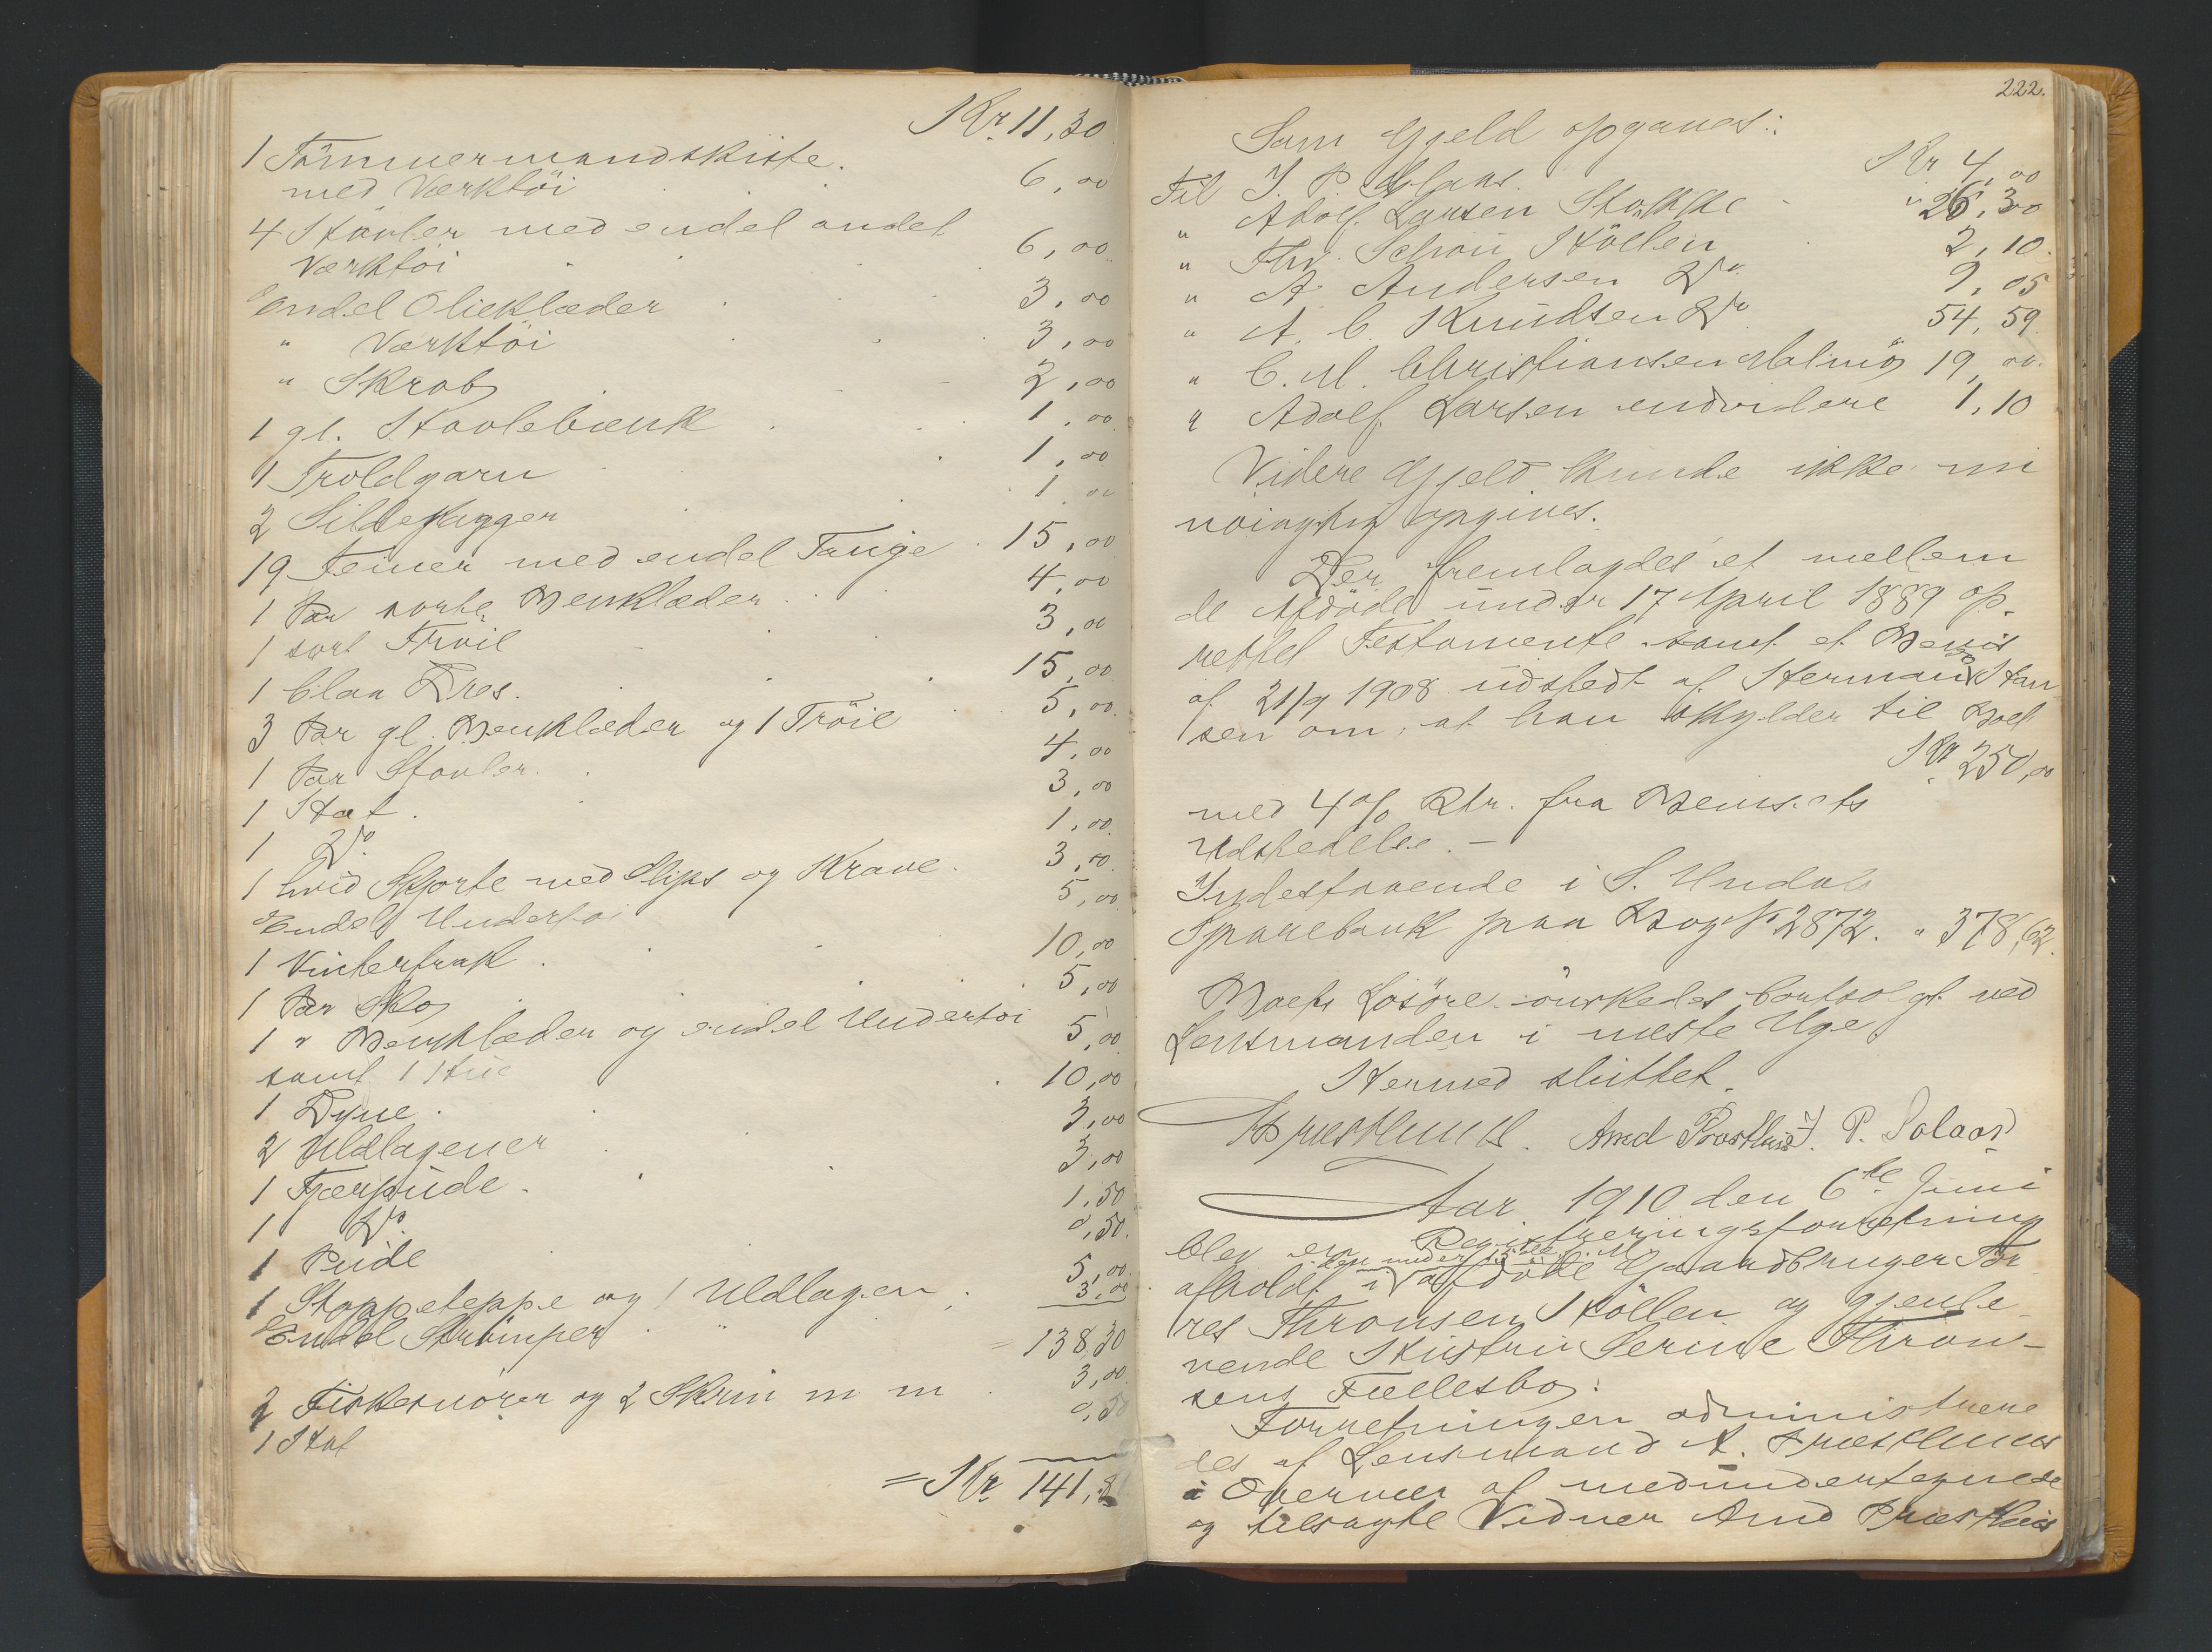 Kr. 11,30
1 Tömmermandskiste
med Værktöi 6,00
4 Høvler med endel andet
Værktöi 6,00
Endel Olieklæder 3,00
" Værktöi 3,00
" Skrab 2,00
1 gl. Høvlebænk 1,00
1 Troldgarn 1,00
2 Sildefagger 1,00
19 Teiner med endel Tauge 15,00
1 Par sorte Benklæder 4,00
1 sort Tröie 3,00
1 blaa Dres. 15,00
3 Par gl. Benklæder og 1 Tröie 5,00
1 Par Støvler. 4,00
1 Hat. 3,00
1 Do. 1,00
1 hvid Skjorte med Slips og Krave. 3,00
Endel Undertøi 5,00
1 Vinterfrak. 10,00
1 Par Sko 5,00
1 " Benklæder og endel Undertøi
samt 1 Hue 5,00
1 Dyne. 10,00
2 Uldlagener 3,00
1 Fjærpude. 3,00
1 Do. 1,50
1 Pude 0,50
1 Stoppeteppe og 1 Uldlagen 5,00
Endel Strömper 3,00
= 138,30
2 Fiskesnörer og 2 Skrin m m 3,00
1 Hat 0,50
= Kr. 141,8
222.
Som Gjeld opgaves:
Til J. P. Kr 4,00
" Adolf Larsen Stokke " 26,30
" Thv. Schou Höllen 2,10
" A. Andersen Do. 9,05
" A. C. Knudsen Do 54,59
" C. M. Christiansen Malmö 19,00
" Adolf Larsen endvidere 1,10
Videre Gjeld kunde ikke nu
nöiagtig opgives.
Der fremlagdes et mellem
de Afdöde under 17 April 1889 op-
rettet Testamente samt et Bevis
af 21/9 1908 udstedt af Herman Han
sen om, at han skylder til Boet
Kr 250,00
med 4 % Rtr. fra Bevisets
Udstedelse. -
Indestaaende i S. Undals
Sparebank paa Bog N. 2872. " 378,62.
Boets Lösöre önskedes bortsolgt ved
Lensmanden i næste Uge
Hermed sluttet.
A Præsthuus. Arnd Præsthus J. P. Solaas
Aar 1910 den 6te Juni
blev en Registreringsforretning
afholdt i afdöde Gaardbruger Tor
res Thronsen, Höllen og gjenle
vende Hustru Serine Thron-
sens Fællesbo:
Forretningen administrere
des af Lensmand A. Præsthuus
i Overvær af medundertegnede
og tilsagte Vidner Arnd Præsthus